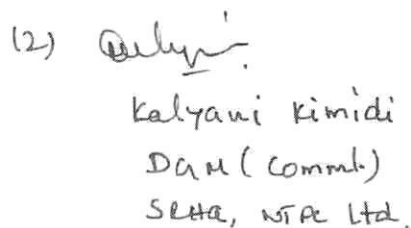 (2)
Kalyani Kimidi
DGM (Comml.)
SRHQ, NTPC Ltd.